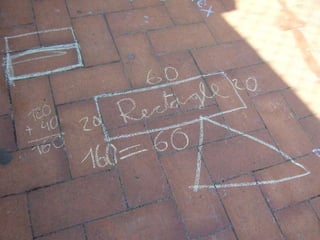 60
Rectangle
20
20
100
+ 40
160
160 = 60